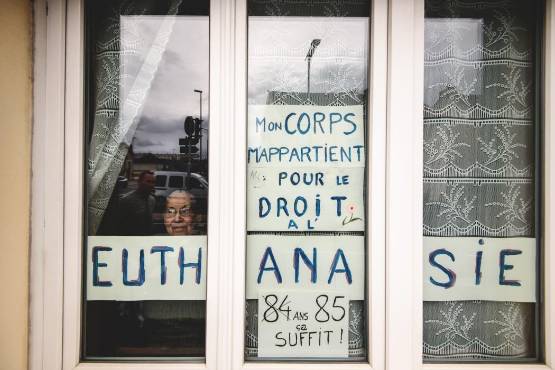 Mon CORPS
M'APPARTIENT
POUR LE
DROIT
A L'
EUTH ANA SiE
84 ANS 85
ça
SUFFIT !